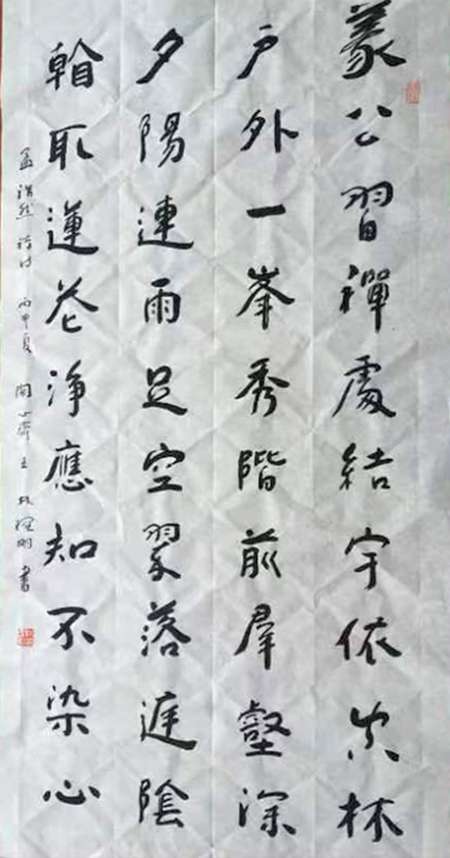 義公習禪處結宇依空林
户外一峯秀階前羣壑深
夕陽連雨足空翠落庭陰
看取蓮花淨應知不染心
孟浩然詩 丙申夏 閑心齋主 明書